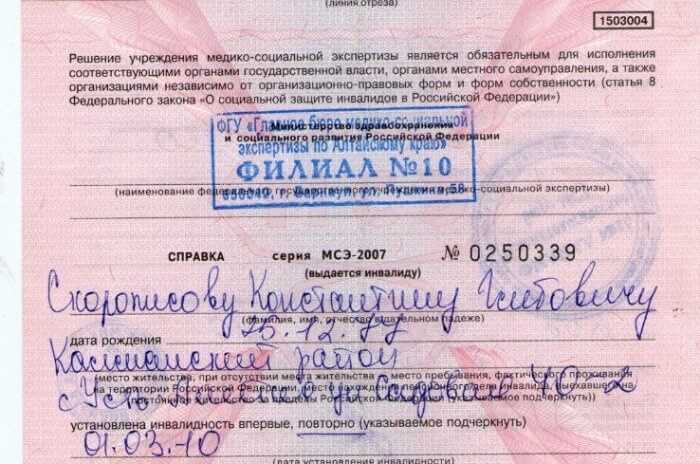 (линия отреза)
1503004
Решение учреждения медико-социальной экспертизы является обязательным для исполнения
соответствующими органами государственной власти, органами местного самоуправления, а также
организациями независимо от организационно-правовых форм и форм собственности (статья 8
Федерального закона «О социальной защите инвалидов в Российской Федерации»)
ФГУ «Главное бюро медико-социальной
Министерство здравоохранения
и социального развития Российской Федерации
экспертизы по Алтайскому краю»
ФИЛИАЛ №10
656049, г. Барнаул, ул. Пушкина, 58
(наименование федерального государственного учреждения медико-социальной экспертизы)
СПРАВКА серия МСЭ-2007 № 0250339
(выдается инвалиду)
Скорописову Константину Глебовичу
(фамилия, имя, отчество в дательном падеже)
дата рождения 25.12.77
район
(место жительства, при отсутствии места жительства — место пребывания, фактического проживания
на территории Российской Федерации, место нахождения пенсионного дела инвалида, выехавшего на
постоянное жительство за пределы Российской Федерации (указываемое подчеркнуть))
с Усть
установлена инвалидность впервые, повторно (указываемое подчеркнуть)
01.03.10
(дата установления инвалидности)